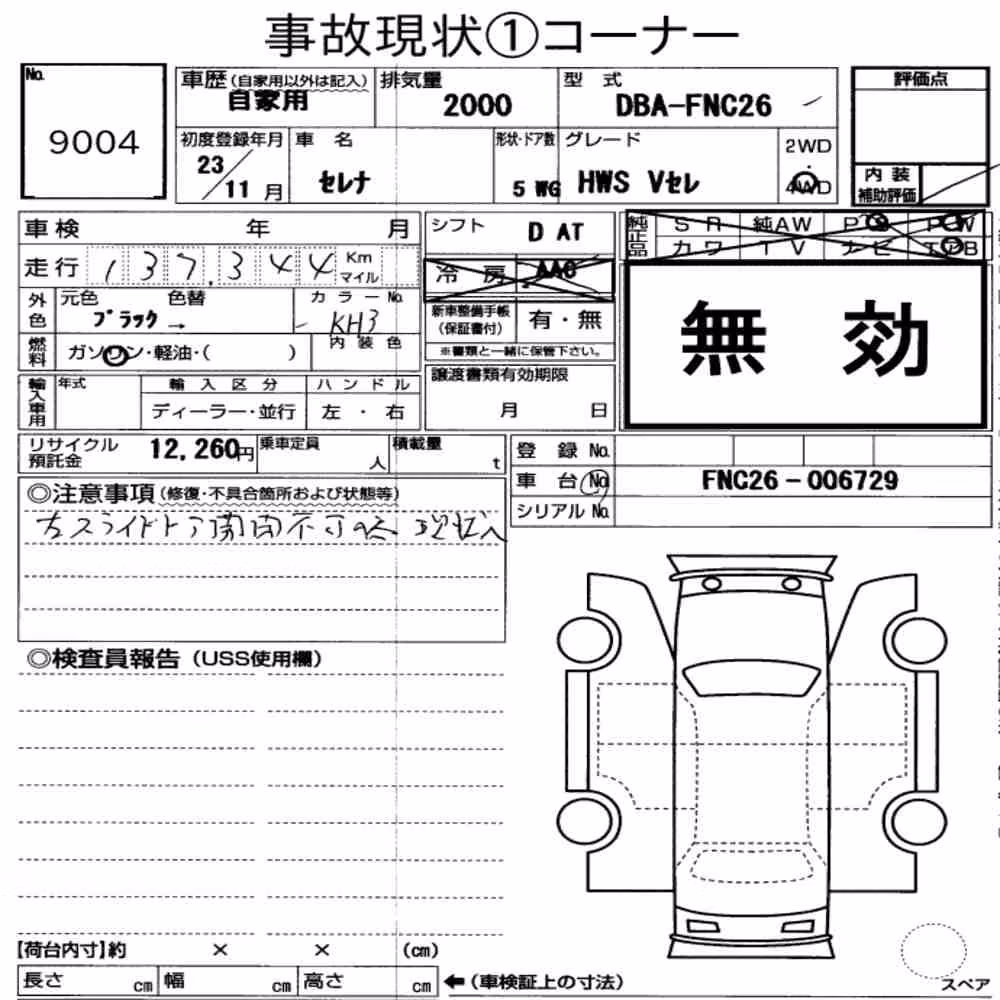 事故現状①コーナー
No.
9004
車歴(自家用以外は記入)
自家用
排気量
2000
型 式
DBA-FNC26
評価点
初度登録年月
23/11月
車 名
セレナ
形状・ドア数
5 WG
グレード
HWS Vセレ
2WD
4WD
内装
補助評価
車検 年 月
シフト
D AT
純正品
SR 純AW PS PW
カワ TV ナビ エアB
走行 137,344 Km マイル
冷房 AAC
無効
外色
元色 色替
ブラック →
カラーNo.
KH3
新車整備手帳
(保証書付)
有・無
燃料
ガソリン・軽油・( )
内装色
※書類と一緒に保管下さい。
輸入車用
年式
輸入区分
ディーラー・並行
ハンドル
左・右
譲渡書類有効期限
月 日
リサイクル
預託金
12,260円
乗車定員
人
積載量
t
登録No.
車台No.
FNC26-006729
シリアルNo.
◎注意事項(修復・不具合箇所および状態等)
左スライドドア開閉不可
◎検査員報告(USS使用欄)
【荷台内寸】約 × × (cm)
長さ cm 幅 cm 高さ cm
←(車検証上の寸法)
スペア